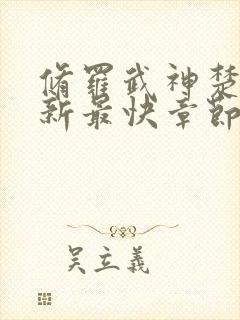 脩羅武神楚
新最快章節
吴立義